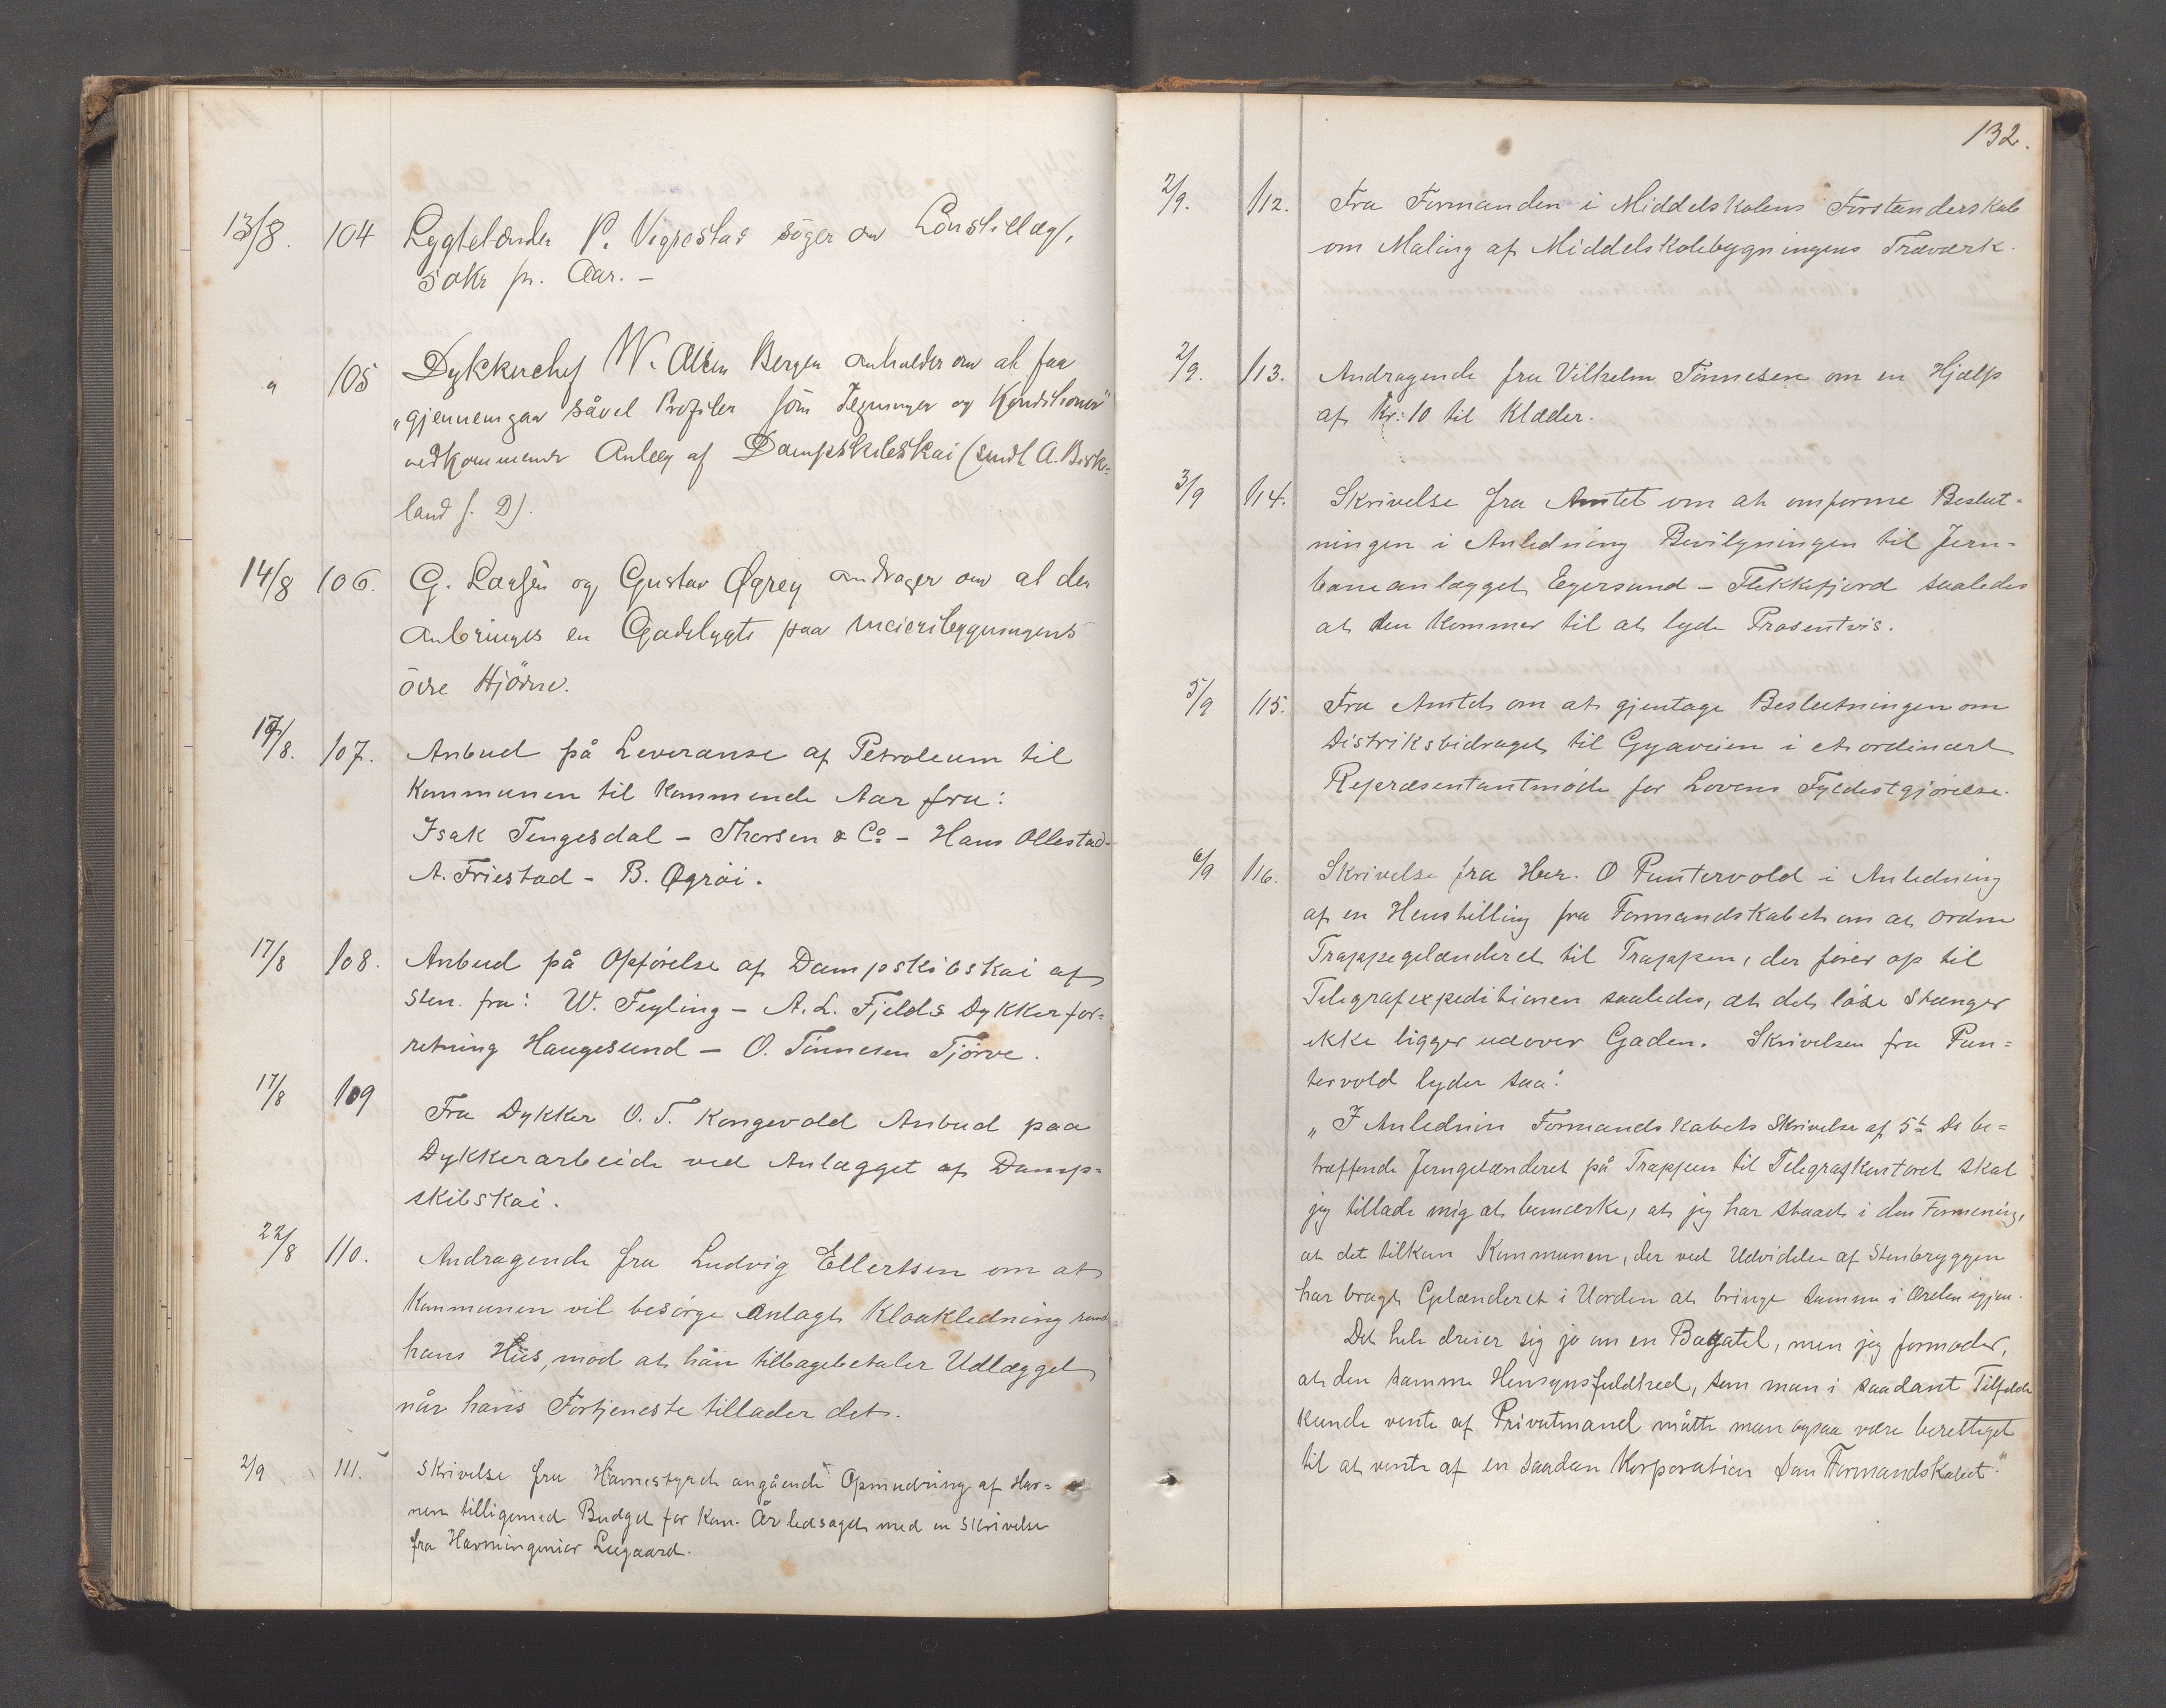 13/8. 104 Lygtetænder P. Vigrestad söger om Lönstillæg,
50 Kr pr. Aar. –
" 105 Dykkerchef W. Olsen Bergen anholder om at faa
„gjennemgaa såvel Profiler som Tegninger og Konditioner"
vedkommende Anlæg af Dampskibskai (sendt A. Birk-
land f. D).
14/8 106. G. Larsen og Gustav Øgrey andrager om at der
anbringes en Gadelygte paa Meieribygningens
övre Hjörne.
17/8. 107. Anbud på Leveranse af Petroleum til
Kommunen til kommende Aar fra:
Isak Tengesdal – Thorsen & Co – Hans Ollestad –
A. Friestad – B. Øgröi.
17/8 108. Anbud på Opförelse af Dampskibskai af
Sten. fra: W. Feyling – A. L. Fjelds Dykkerfor=
retning Haugesund – O. Tönnesen Tjörve.
17/8 109 Fra Dykker O. T. Kongevold Anbud paa
Dykkerarbeide ved Anlægget af Damp=
skibskai.
22/8 110. Andragende fra Ludvig Ellertsen om at
Kommunen vil besörge anlagt Kloakledning rundt
hans Hüs, mod at hån tilbagebetaler Udlægget
når hans Fortjeneste tillader det.
2/9 111. Skrivelse fra Havnestyret angående Opmudring af Hav=
nen tilligemed Budget for Kom. År ledsaget med en Skrivelse
fra Havneingeniør Leegaard.
132.
2/9. 112. Fra Formanden i Middelskolens Forstanderskab
om Maling af Middelskolebygningens Træværk.
2/9. 113. Andragende fra Vilhelm Tönnesen om en Hjælp
af Kr: 10 til Klæder.
3/9 114. Skrivelse fra Amtet om at omforme Beslut=
ningen i Anledning Bevilgningen til Jern=
baneanlægget Egersund – Flekkefjord saaledes
at den kommer til at lyde Prosentvis.
5/9 115. Fra Amtet om at gjentage Beslutningen om
Distriksbidraget til Gyaveien i et ordinært
Repræsentantmöde for Lovens Fyldestgjörelse.
6/9 116. Skrivelse fra Her. O Puntervold i Anledning
af en Henstilling fra Formandskabet om at ordne
Trappegelænderet til Trappen, der förer op til
Telegrafexpeditionen saaledes, at det löse Stænger
ikke ligger udover Gaden. Skrivelsen fra Pun=
tervold lyder saa:
„I Anlednin Formandskabets Skrivelse af 5te Ds be=
træffende Jerngelænderet på Trappen til Telegrafkontoret skal
jeg tillade mig at bemærke, at jeg har staaet i den Formening,
at det tilkom Kommunen, der ved Udvidelse af Stenbryggen
har bragt Gelænderet i Uorden at bringe samme i Orden igjen.
Det hele dreier sig jo om en Bagatel, men jeg formoder,
at den samme Hensynsfuldhed, som man i saadant Tilfælde
kunde vente af Privatmand måtte man ogsaa være berettiget
til at vente af en saadan Korporation som Formandskabet."